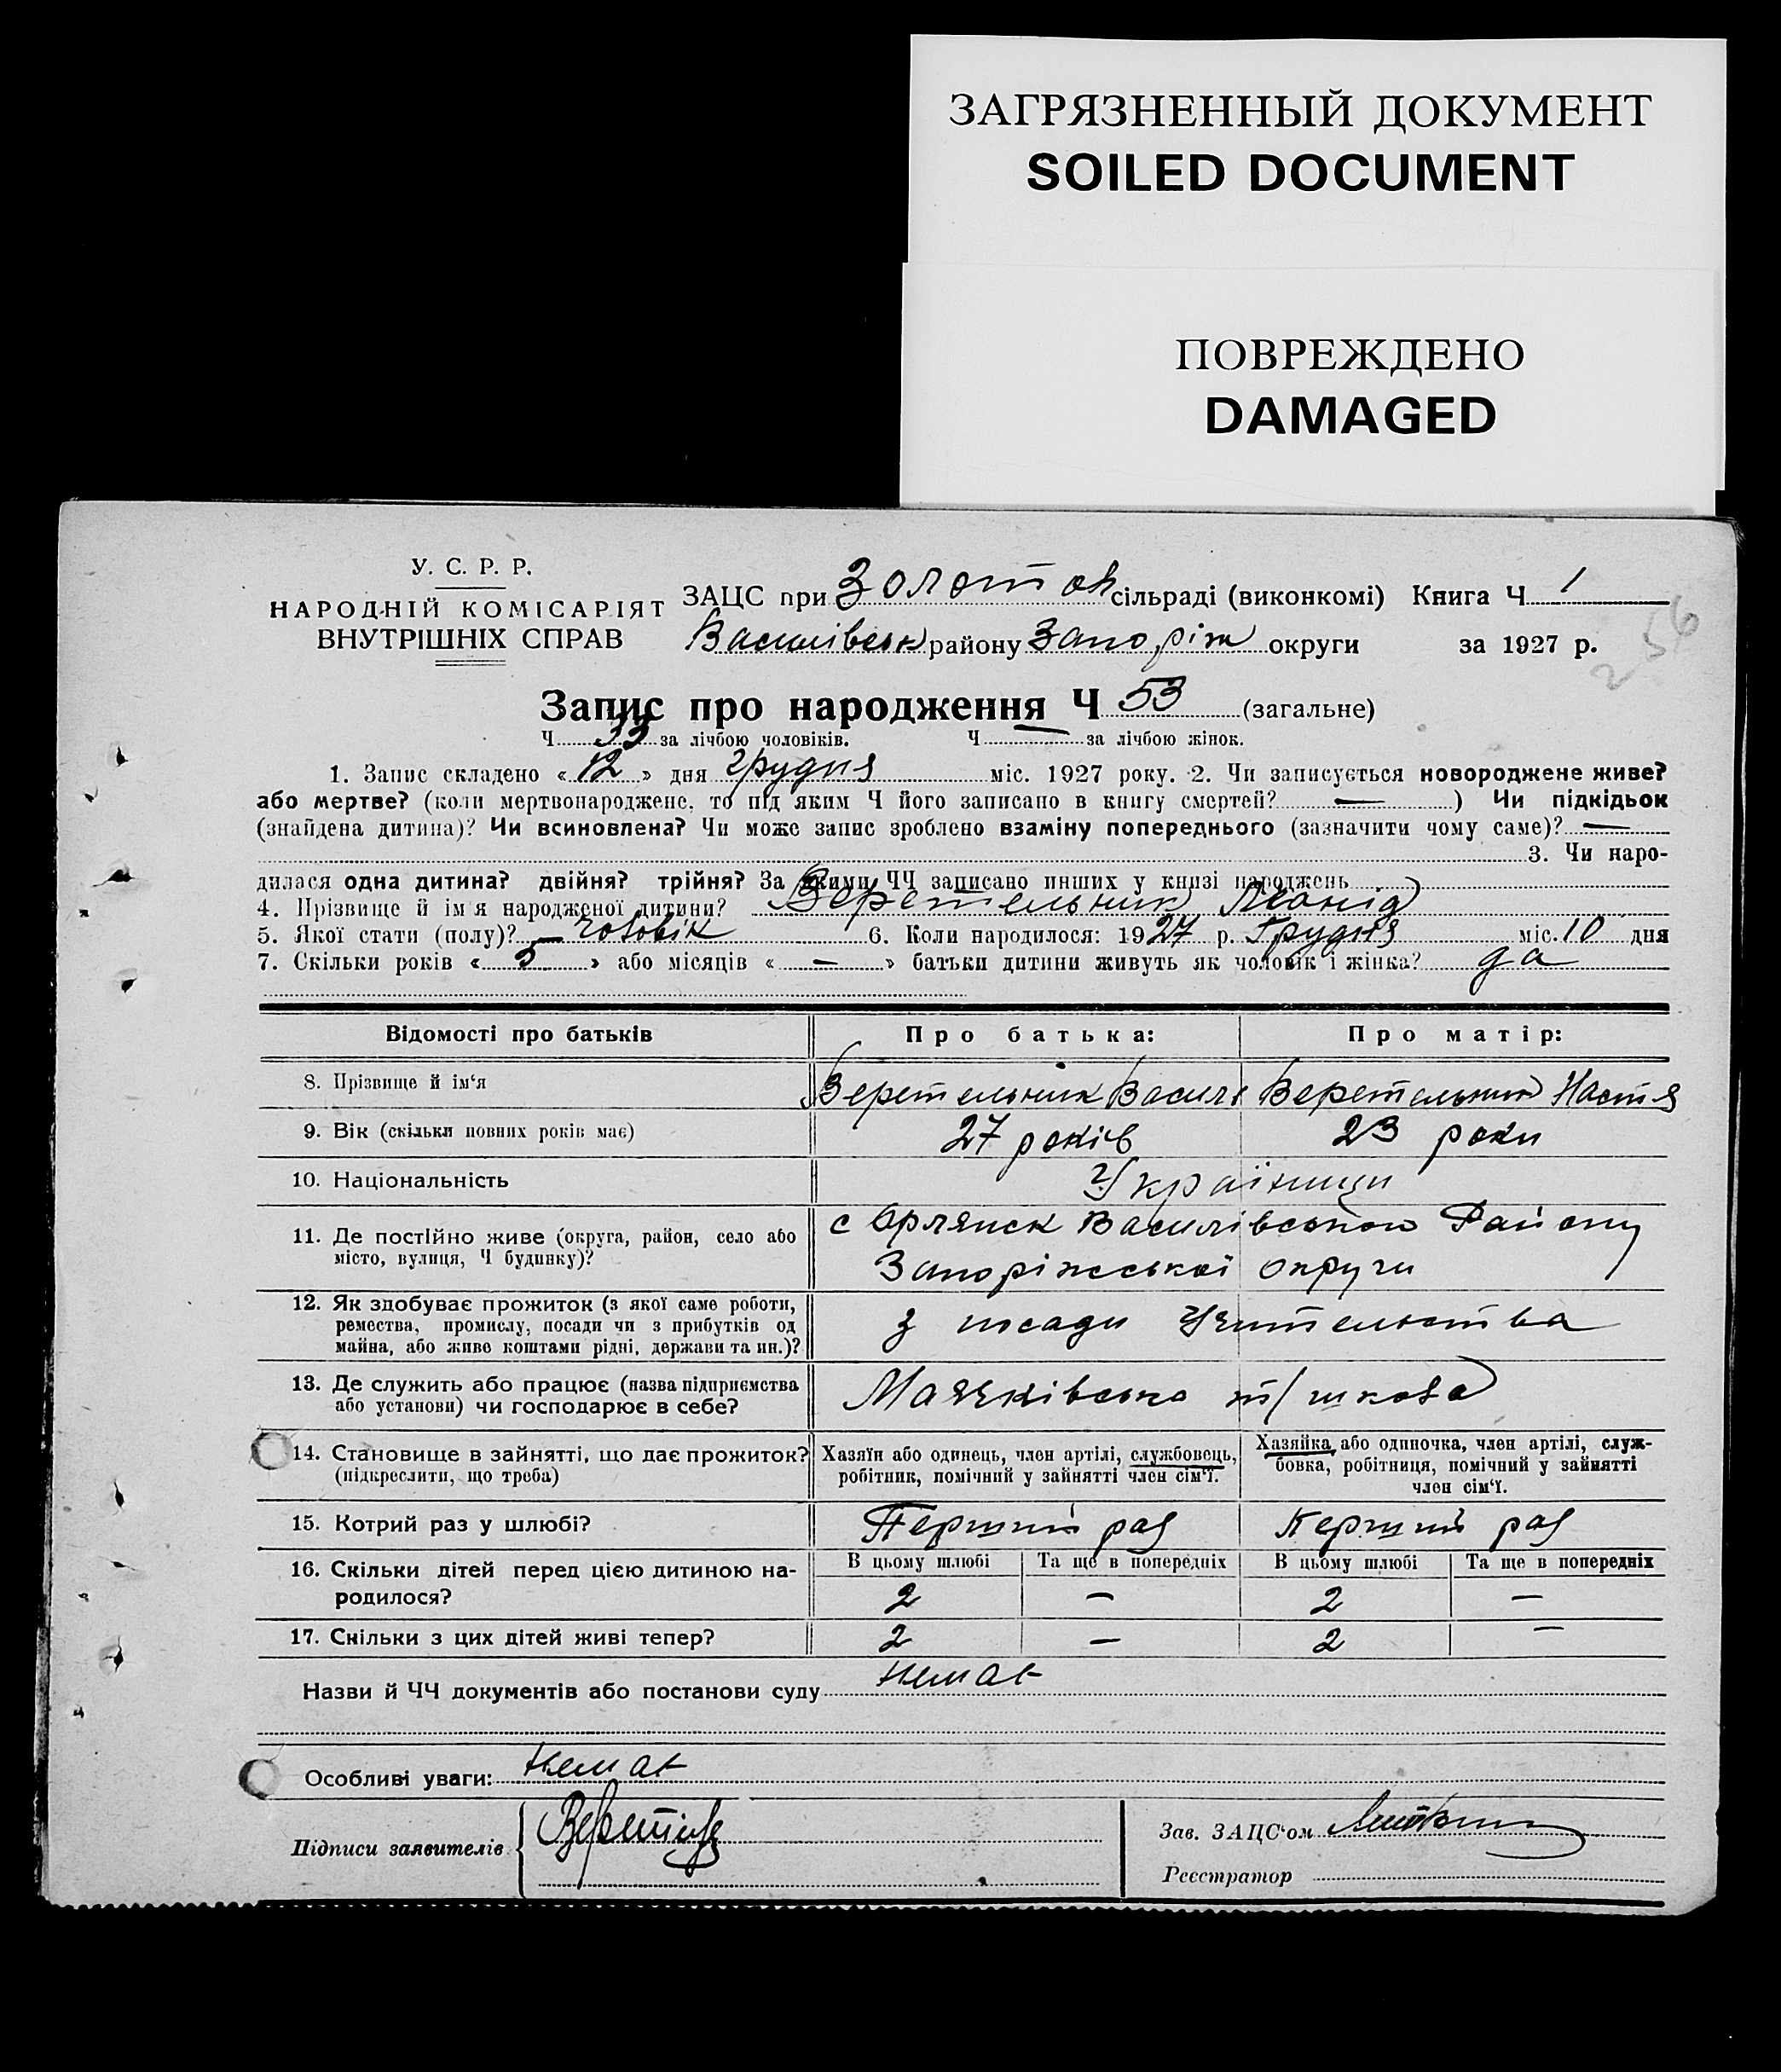 ЗАГРЯЗНЕННЫЙ ДОКУМЕНТ
SOILED DOCUMENT
ПОВРЕЖДЕНО
DAMAGED
У. С. Р. Р.
НАРОДНІЙ КОМІСАРІЯТ
ВНУТРІШНІХ СПРАВ
ЗАЦС при Золоток сільраді (виконкомі) Книга Ч 1
Василівськ району Запоріж округи за 1927 р.
256
Запис про народження Ч 53 (загальне)
Ч 33 за лічбою чоловіків. Ч — за лічбою жінок.
1. Запис складено «12» дня грудня міс. 1927 року. 2. Чи записується новороджене живе?
або мертве? (коли мертвонароджене, то під яким Ч його записано в книгу смертей? —) Чи підкідьок
(знайдена дитина)? Чи всиновлена? Чи може запис зроблено взаміну попереднього (зазначити чому саме)? —
3. Чи наро-
дилася одна дитина? двійня? трійня? За якими ЧЧ записано инших у книзі народжень
4. Прізвище й ім'я народженої дитини? Веретельник Леонід
5. Якої стати (полу)? — чоловік 6. Коли народилося: 1927 р. Грудня міс. 10 дня
7. Скільки років «5» або місяців «—» батьки дитини живуть як чоловік і жінка? да
Відомості про батьків Про батька: Про матір:
8. Прізвище й ім'я Веретельник Василь Веретельник Настя
9. Вік (скільки повних років має) 27 років 23 роки
10. Національність Українци
11. Де постійно живе (округа, район, село або
місто, вулиця, Ч будинку)?
с Орлянск Василівського Району
Запоріжської округи
12. Як здобуває прожиток (з якої саме роботи,
ремества, промислу, посади чи з прибутків од
майна, або живе коштами рідні, держави та ин.)?
з посади Учительства
13. Де служить або працює (назва підприємства
або установи) чи господарює в себе?
Маячківська т/школа
14. Становище в зайнятті, що дає прожиток?
(підкреслити, що треба)
Хазяїн або одинець, член артілі, службовець,
робітник, помічний у зайнятті член сім'ї.
Хазяйка або одиночка, член артілі, служ-
бовка, робітниця, помічний у зайнятті
член сім'ї.
15. Котрий раз у шлюбі? Перший раз Перший раз
16. Скільки дітей перед цією дитиною на-
родилося?
В цьому шлюбі Та ще в попередніх В цьому шлюбі Та ще в попередніх
2 — 2 —
17. Скільки з цих дітей живі тепер? 2 — 2 —
Назви й ЧЧ документів або постанови суду немає
Особливі уваги: немає
Підписи заявителів
Зав. ЗАЦС'ом
Реєстратор